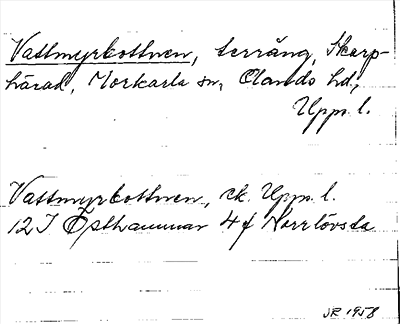 Vattmyrbottnen, terräng, Skarp-
härad, Morkarla sn, Olands hd,
Upps. l.
Vattmyrbottnen, ek. Upps. l.
12 I Östhammar 4 f Norrlövsta
JR 1958